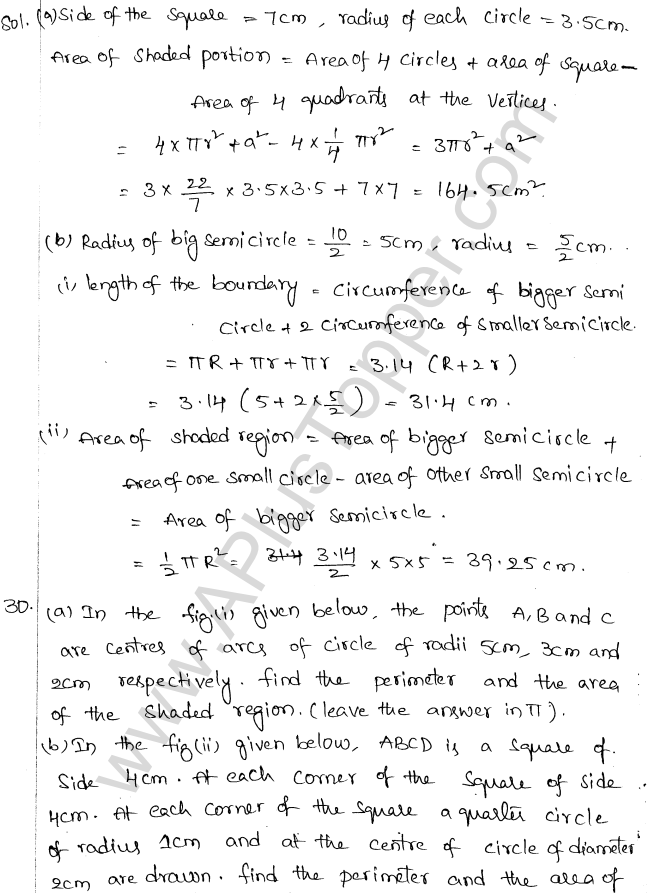 Sol. (a) Side of the square = 7cm, radius of each circle = 3.5cm.
Area of shaded portion = Area of 4 circles + area of square -
Area of 4 quadrants at the vertices.
= 4 × πr² + a² - 4 × 1/4 πr² = 3πr² + a²
= 3 × 22/7 × 3.5 × 3.5 + 7 × 7 = 164.5cm².
(b) Radius of big semicircle = 10/2 = 5cm, radius = 5/2 cm.
(i) length of the boundary = circumference of bigger semi
circle + 2 circumference of smaller semicircle.
= πR + πr + πr = 3.14 (R + 2r)
= 3.14 (5 + 2 × 5/2) = 31.4 cm.
(ii) Area of shaded region = Area of bigger semicircle +
Area of one small circle - area of other small semicircle
= Area of bigger semicircle.
= 1/2 πR² = 31.4 3.14/2 × 5 × 5 = 39.25 cm.
30. (a) In the fig.(i) given below, the points A, B and C
are centres of arcs of circle of radii 5cm, 3cm and
2cm respectively. find the perimeter and the area
of the shaded region. (leave the answer in π).
(b) In the fig(ii) given below, ABCD is a square of
side 4cm. At each corner of the square of side
4cm. At each corner of the square a quarter circle
of radius 1cm and at the centre of circle of diameter
2cm are drawn. find the perimeter and the area of
www.APlusTopper.com